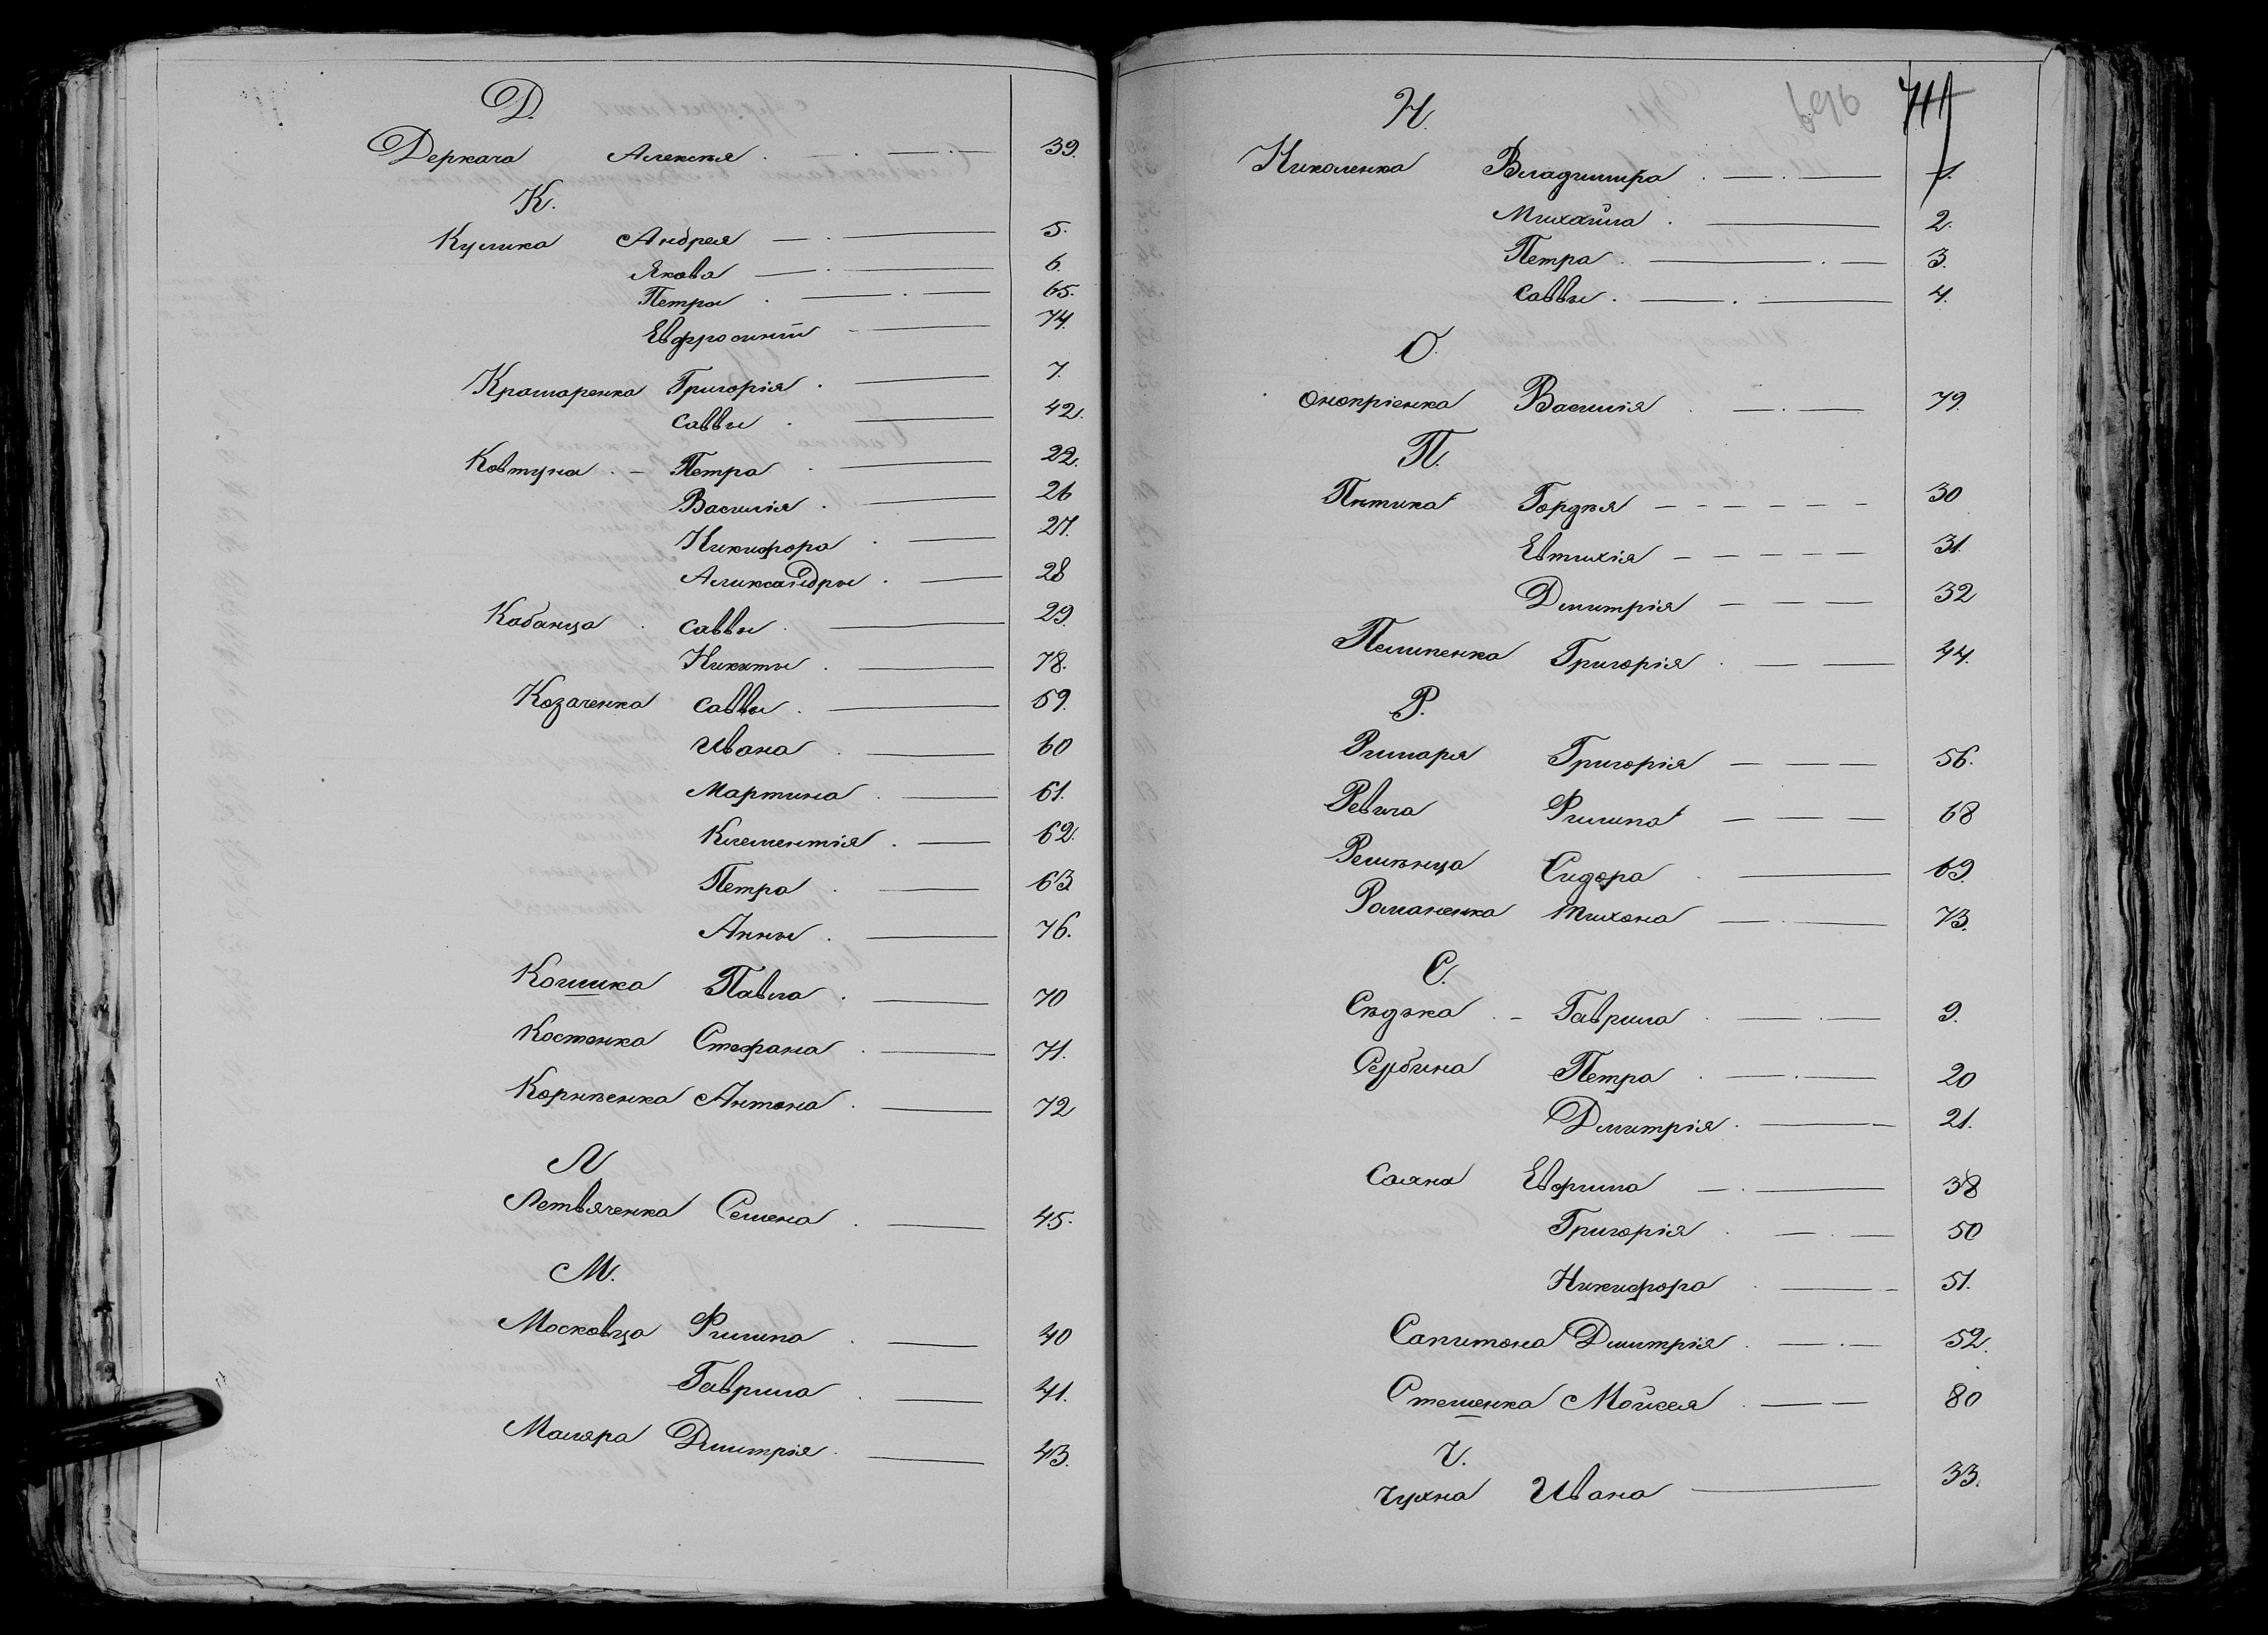 Д.
Деркача Алексѣя 39.
К.
Кулика Андрея 5.
Якова 6.
Петра 65.
Евфросиніи 74.
Крамаренка Григорія 7.
Саввы 42.
Ковтуна Петра 22.
Василія 26
Никифора 27.
Александры 28
Кабанца Саввы 29.
Никиты 78.
Козаченка Саввы 59.
Ивана 60
Мартина 61.
Климентія 62.
Петра 63
Анны 76.
Кошика Павла 70
Костенка Стефана 71.
Корніенка Антона 72
Л
Летвяченка Семена 45.
М.
Московца Филипа 40
Гаврила 41.
Маляра Дмитрія 43.
696 711
Н.
Николенка Владимира 1.
Михаила 2.
Петра 3.
Саввы 4.
О.
Оноприенка Василія 79.
П.
Пѣтика Гордѣя 30
Евтихія 31.
Дмитрія 32
Пелипенка Григорія 44.
Р.
Римаря Григорія 56.
Ревила Филипа 68
Сидора 69.
Романенка Тихона 73.
С.
Сѣдька Гаврила 9.
Сербина Петра 20
Дмитрія 21.
Саяна Ефрима 38
Григорія 50
Никифора 51.
Сапитона Дмитрія 52.
Стешенка Мойсея 80
Ч.
Чухна Ивана 33.